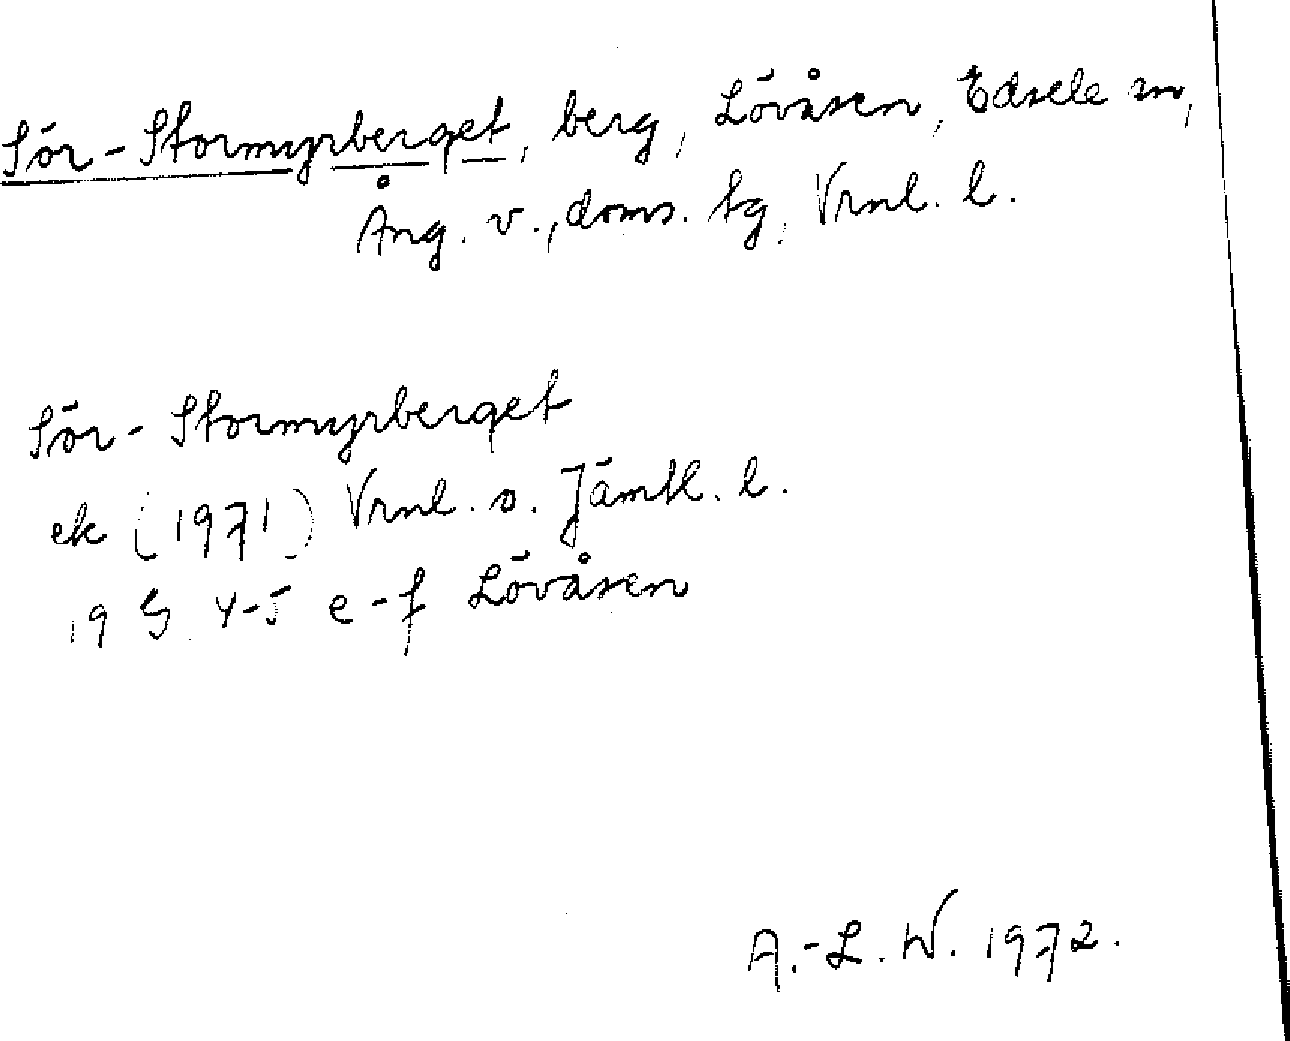 Sör-Stormyrberget, berg, Lövåsen, Edsele sn,
Ång. v., doms. tg, Vrnl. l.
Sör-Stormyrberget
ek (1971) Vrnl. o. Jämtl. l.
19 G 4-5 e-f Lövåsen
A.-L. W. 1972.